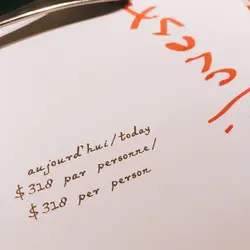 aujourd'hui/today
$318 par personne/
$318 per person